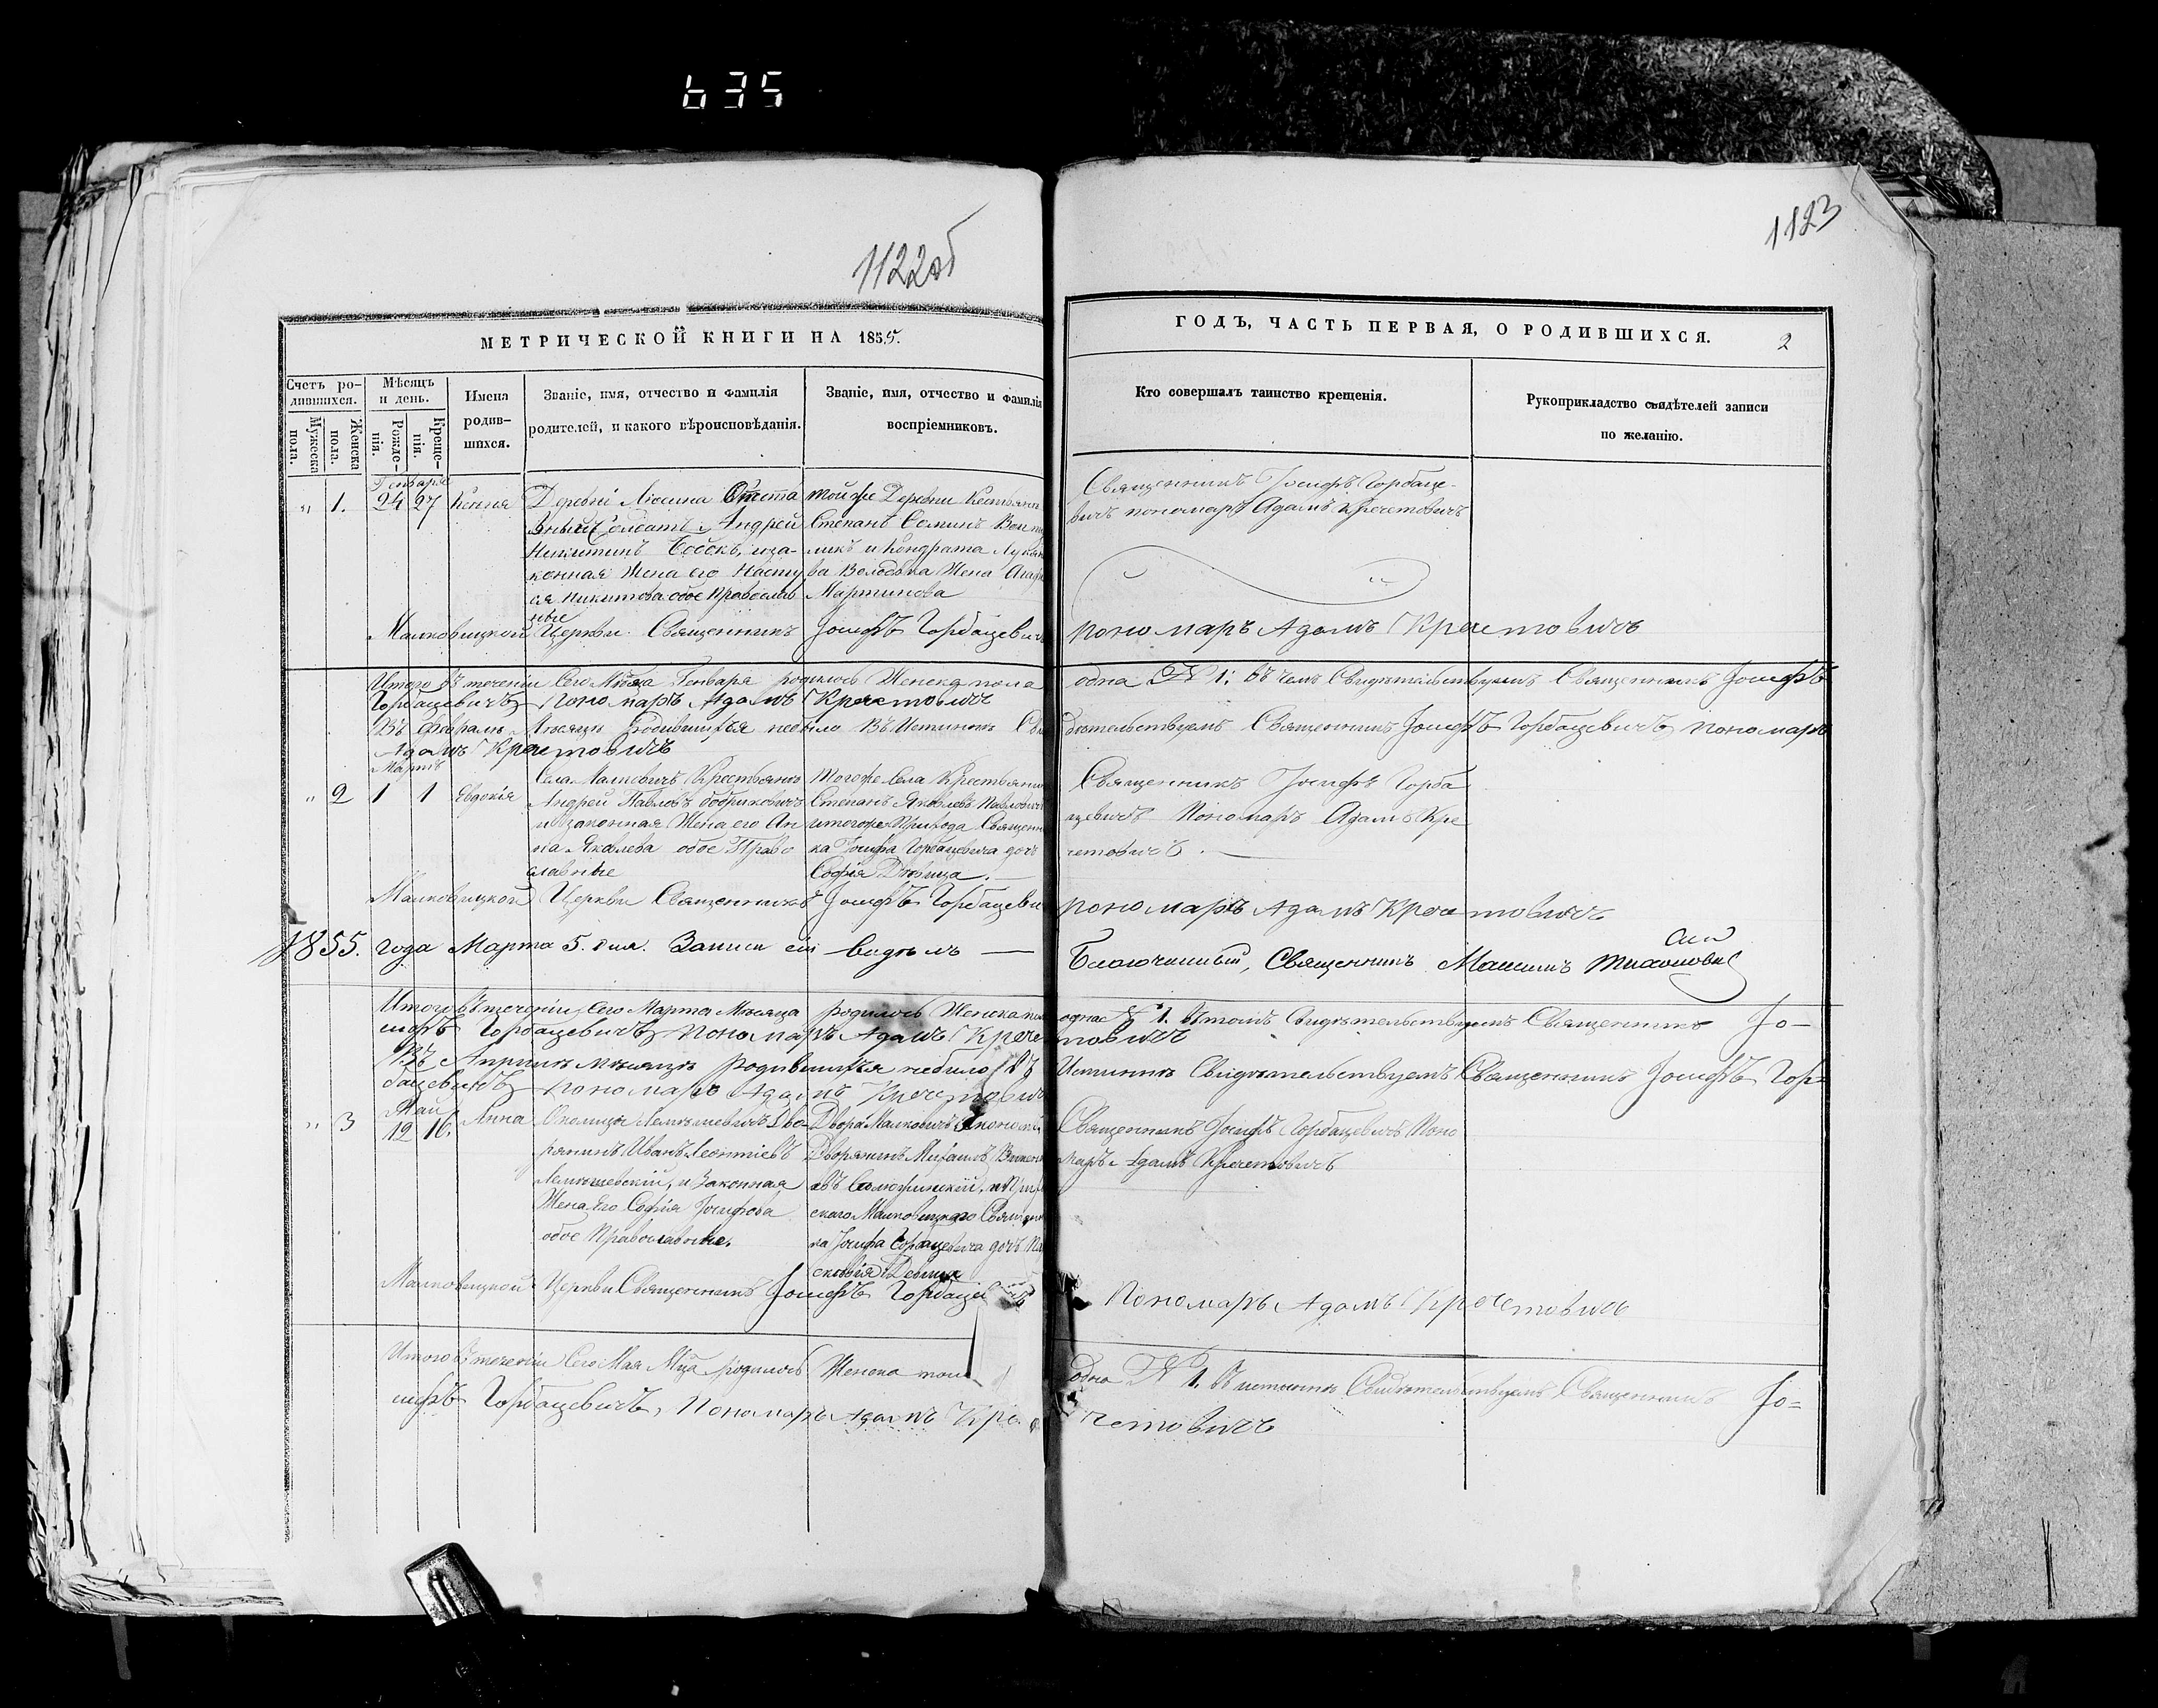 635
1122об
1123
МЕТРИЧЕСКОЙ КНИГИ НА 1855.
ГОДЪ, ЧАСТЬ ПЕРВАЯ, О РОДИВШИХСЯ.
2
Счетъ ро-
дившихся.
Мужеска
пола.
Женска
пола.
Мѣсяцъ
и день.
Рожде-
нія.
Креще-
нія.
Имена
родив-
шихся.
Званіе, имя, отчество и фамилія
родителей, и какого вѣроисповѣданія.
Званіе, имя, отчество и фамилія
воспріемниковъ.
Кто совершалъ таинство крещенія.
Рукоприкладство свидѣтелей записи
по желанію.
Генваря
" 1. 24 27 Ксенія
Деревни Люсина
Солдатъ Андрей
Никитинъ
конная Жена его Насту
ся Никитова обое Православ
ные
тойже Деревни
Степанъ
ликъ и Кондрата
ва Жена
Мартинова
Священникъ Іосифъ Горбаце-
вичъ пономарь Адамъ Кречетовичъ
Малковицкой Церкви Священникъ Іосифъ Горбацевичъ
пономаръ Адамъ Кречетовичъ
Итого въ теченіи Сего Мѣсяца Генваря родилось Женска пола
одна № 1: въ чемъ Свидѣтельствуемъ Священникъ Іосифъ
Горбацевичъ Пономаръ Адамъ Кречетовичъ
Въ Февралѣ Мѣсяцѣ Родившихся небыло Въ Истинномъ Сви
дѣтельствуемъ Священникъ Іосифъ Горбацевичъ пономаръ
Адамъ Кречетовичъ
Марта
" 2 1 1 Евдокія
Села Малковичъ Крестьянинъ
Андрей Павловъ Бобриковичъ
и законная Жена его Ан
на Яковлева обое Право
славные
Тогоже Села Крестьянинъ
Степанъ Яковлевъ
итогоже Прихода Священни
ка Іосифа Горбацевича дочь
Софія Дѣвица.
Священникъ Іосифъ Горба
цевичъ Пономаръ Адамъ Кре
четовичъ
Малковицкой Церкви Священникъ Іосифъ Горбацеви
пономаръ Адамъ Кречетовичъ
1855. года Марта 5. дня. Записи сіи видѣлъ
Благочинный, Священникъ
Итого въ теченіи Сего Марта Мѣсяца родилось Женска пола
одна № 1. въ томъ Свидѣтельствуемъ Священникъ Іо-
сифъ Горбацевичъ Пономаръ Адамъ Крече
товичъ
Въ Апрѣлѣ мѣсяцѣ родившихся небыло въ
Истиннѣ Свидѣтельствуемъ Священникъ Іосифъ Гор-
бацевичъ пономаръ Адамъ Кречетович
Май
" 3 12 16. Анна
Околицы Лемешевичъ Дво-
рянинъ Иванъ Леонтіевъ
Лемешевскій, и Законная
Жена Его Софія Іосифова
обое Православные.
Двора Малковичъ
Дворянинъ Михаилъ
скаго Малковицкаго Священни
ка Іосифа Горбацевича дочь
Священникъ Іосифъ Горбацевичъ Поно
маръ Адамъ Кречетовичъ
Малковицкой Церкви Священникъ Іосифъ Горбацевичъ
Пономаръ Адамъ Кречетовичъ
Итого въ теченіи Сего Мая Мца родилось Женска пол
одна № 1. въ истиннѣ Свидѣтельствуемъ Священникъ Іо=
сифъ Горбацевичъ, Пономаръ Адамъ Кре
четовичъ